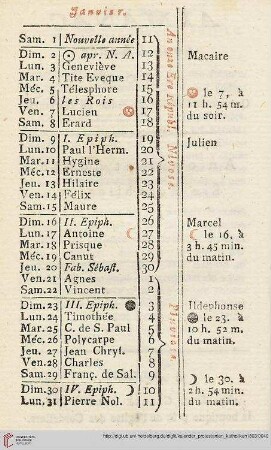 Janvier.
Sam. 1 Nouvelle année 11
Dim. 2 apr. N. A. 12 Macaire
Lun. 3 Geneviéve 13
Mar. 4 Tite Eveque 14
Méc. 5 Télesphore 15
Jeu. 6 les Rois 16 le 7, à
Ven. 7 Lucien 17 11 h. 54 m.
Sam. 8 Erard 18 du soir.
Dim. 9 I. Epiph. 19 Julien
Lun. 10 Paul l'Herm. 20
Mar. 11 Hygine 21
Méc. 12 Erneste 22
Jeu. 13 Hilaire 23
Ven. 14 Félix 24
Sam. 15 Maure 25
Dim. 16 II. Epiph. 26 Marcel
Lun. 17 Antoine 27 le 16, à
Mar. 18 Prisque 28 3 h. 45 min.
Méc. 19 Canut 29 du matin.
Jeu. 20 Fab. Sébast. 30
Ven. 21 Agnes 1
Sam. 22 Vincent 2
Dim. 23 III. Epiph. 3 Ildephonse
Lun. 24 Timothée 4 le 23. à
Mar. 25 C. de S. Paul 5 10 h. 52 m.
Méc. 26 Polycarpe 6 du matin.
Jeu. 27 Jean Chryf. 7
Ven. 28 Charles 8
Sam. 29 Franç. de Sal. 9 le 30. à
Dim. 30 IV. Epiph. 10 2 h. 54 min.
Lun. 31 Pierre Nol. 11 du matin.
Nivose.
Pluviose.